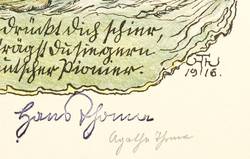 drückt dich schier,
trägst du sie gern
deutscher Pionier.
HTh
1916.
Hans Thoma
Agathe Thoma